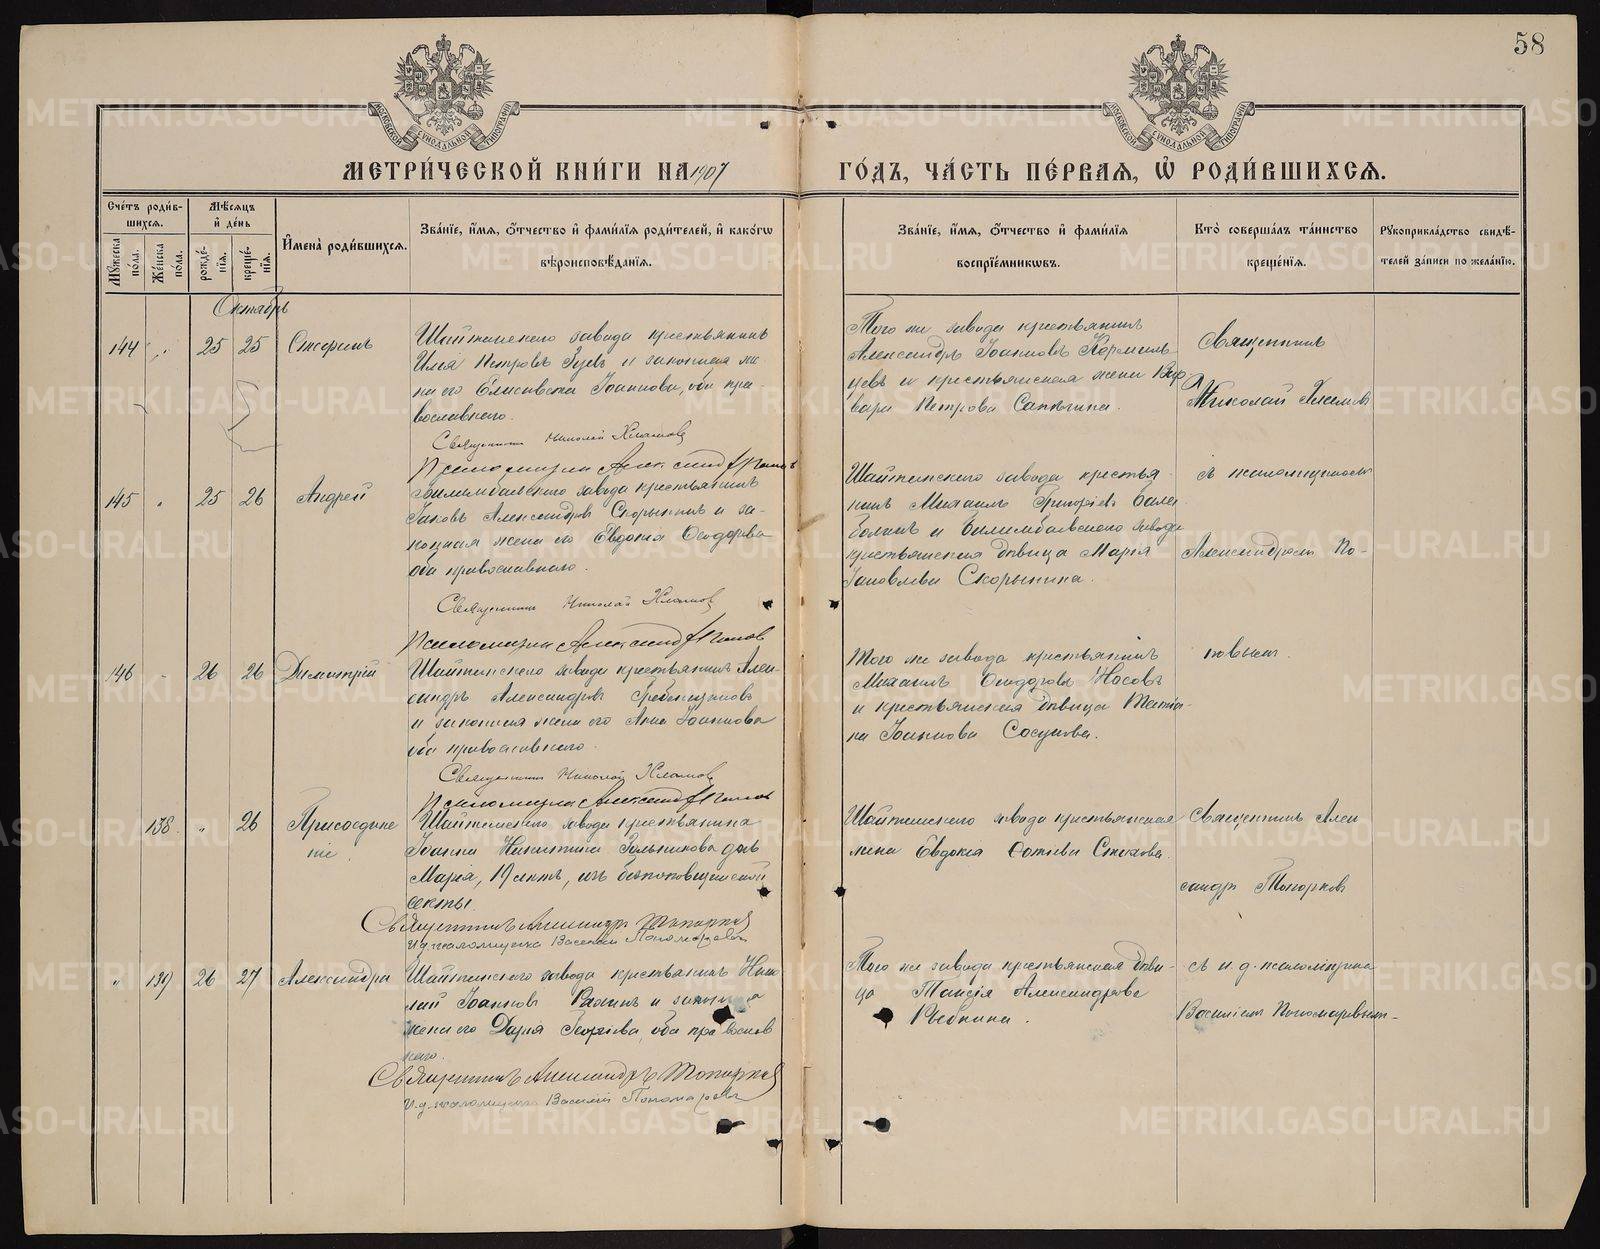 58
МОСКОВСКОЙ СѴНОДАЛЬНОЙ ТИПОГРАФІИ
МОСКОВСКОЙ СѴНОДАЛЬНОЙ ТИПОГРАФІИ
МЕТРИ́ЧЕСКОЙ КНИ́ГИ НА 1907
ГО́ДЪ, ЧА́СТЬ ПЕ́РВАѦ, Ѽ РОДИ́ВШИХСѦ.
Сче́тъ роди́в-
шихсѧ.
Мꙋжеска пола.
Же́нска пола.
Мѣ́сѧцъ
и҆ де́нь
рожде́-
нїѧ.
креще́-
нїѧ.
И҆мена̀ роди́вшихсѧ.
Зва́нїе, и҆́мѧ, ѻ҆́тчество и҆ фами́лїѧ роди́телей, и҆ како́гѡ
вѣроисповѣ́данїѧ.
Зва́нїе, и҆́мѧ, ѻ҆́тчество и҆ фами́лїѧ
воспрїе́мникѡвъ.
Кто̀ соверша́лъ та́инство
креще́нїѧ.
Рꙋкоприкла́дство свидѣ́-
телей за́писи по жела́нїю.
Октябрь
144 " 25 25 Стефанъ
Шайтанскаго завода крестьянинъ
Илья Петровъ и законная же
на его Елисавета Іоаннова, оба пра-
вославнаго.
Священникъ Николай Хламовъ
Псаломщикъ Александръ Поповъ
Того же завода крестьянинъ
Александръ Іоанновъ Кормиль-
цевъ и крестьянская жена Вар-
вара Петрова Сапегина.
Священникъ
Николай Хламовъ
145 " 25 26 Андрей
Билимбаевскаго завода крестьянинъ
Іаковъ Александровъ Скорынинъ и за-
конная жена его Евдокія Ѳеодорова
оба православнаго.
Священникъ Николай Хламовъ
Псаломщикъ Александръ Поповъ
Шайтанскаго завода крестья-
нинъ Михаилъ Григорьевъ Бале-
болинъ и Билимбаевскаго завода
крестьянская дѣвица Марія
Іаковлева Скорынина.
съ псаломщикомъ
Александромъ По-
повымъ.
146 " 26 26 Димитрій
Шайтанскаго завода крестьянинъ Алек-
сандръ Александровъ Гребенщиковъ
и законная жена его Анна Іоаннова
оба православнаго.
Священникъ Николай Хламовъ
Псаломщикъ Александръ Поповъ
Того же завода крестьянинъ
Михаилъ Ѳеодоровъ Носовъ
и крестьянская дѣвица Татія-
на Іоаннова Сосунова.
138 " 26 Присоедине
ніе.
Шайтанскаго завода крестьянина
Іоанна Никитина дочь
Марія, 19 лѣтъ, изъ безпоповщинской
секты.
Священникъ Александръ Топорковъ
И.д. псаломщика Василій Пономаревъ
Шайтанскаго завода крестьянская
жена Евдокія Стахова.
Священникъ Алек
сандръ Топорковъ
" 139 26 27 Александра
Шайтанскаго завода крестьянинъ Нико
лай Іоанновъ и законная
жена его Дарія Георгіева, оба православ
наго.
Священникъ Александръ Топорковъ
И.д. псаломщика Василій Пономаревъ
Того же завода крестьянская дѣви-
ца Таисія Александрова
Рябкина.
съ и.д. псаломщика
Василіемъ Пономаревымъ
METRIKI.GASO-URAL.RU